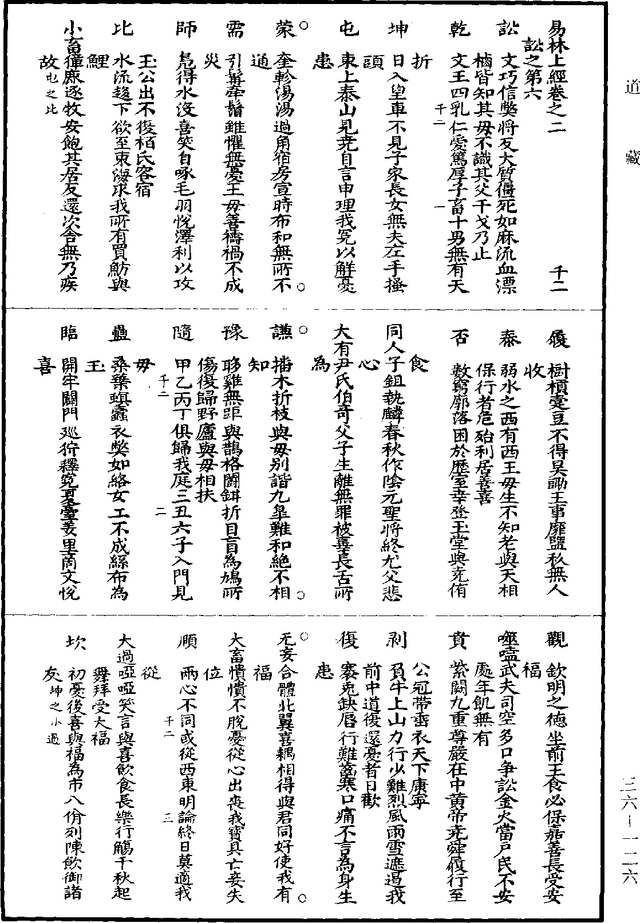 道藏
易林上經卷之二 千二
訟之第六
訟 文巧信獘將反大質僵死如麻流血漂
櫓皆知其毋不識其父干戈乃止
乾 文王四乳仁愛篤厚子畜十男無有夭
折
坤 日入望車不見子家長女無夫左手搔
頭
屯 東上泰山見堯自言申理我冤以解憂
患
蒙 奎軫湯湯過角宿房宣時布和無所不
通
需 引髯牽鬚雖懼無憂王毋善禱禍不成
災
師 鳧得水沒喜笑自啄毛羽悅澤利以攻
玉公出不復栢氏客宿
比 水流趨下欲至東海求我所有買魴與
鯉
小畜獐鹿逐牧安飽其居反還次舍無乃疾
故屯之比
履 樹櫝䔲豆不得芸鋤王事靡盬秋無人
收
泰 弱水之西有西王毋生不知老與天相
保行者危殆利居善喜
否 數窮廓落困於歷室幸登玉堂與堯侑
食
同人子鉏執麟春秋作陰元聖將終尼父悲
心
大有尹氏伯奇父子生離無罪被辜長舌所
為
謙 播木折枝與毋別離九皐難和絕不相
知
豫 眵雞無距與鵲格鬭鉺折目盲為鳩所
傷復歸野廬與毋相扶
隨 甲乙丙丁俱歸我庭三丑六子入門見
毋
蠱 桑葉螟蠹衣獘如絡女工不成絲布為
玉
臨 開牢闢門巡狩釋冤夏臺羑里商文悅
喜
觀 欽明之德坐前玉食必保嘉善長受安
福
噬嗑武夫司空多口爭訟金火當戶民不安
處年飢無有
賁 紫闕九重尊嚴在中黃帝堯舜履行至
公冠帶垂衣天下康寧
剥 負牛上山力行少難烈風雨雪遮遏我
前中道復還憂者日歡
復 蹇兎缺脣行難齒寒口痛不言為身生
患
无妄合體比翼喜耦相得與君同好使我有
福
大畜憒憒不脫憂從心出喪我寶貝亡妾失
位
頤 兩心不同或從西東明論終日莫適我
從
大過啞啞笑言與喜飲食長樂行觴千秋起
舞拜受大福
坎 初憂後喜與福為市八佾列陳飲御諸
友坤之小過
三六—一二六